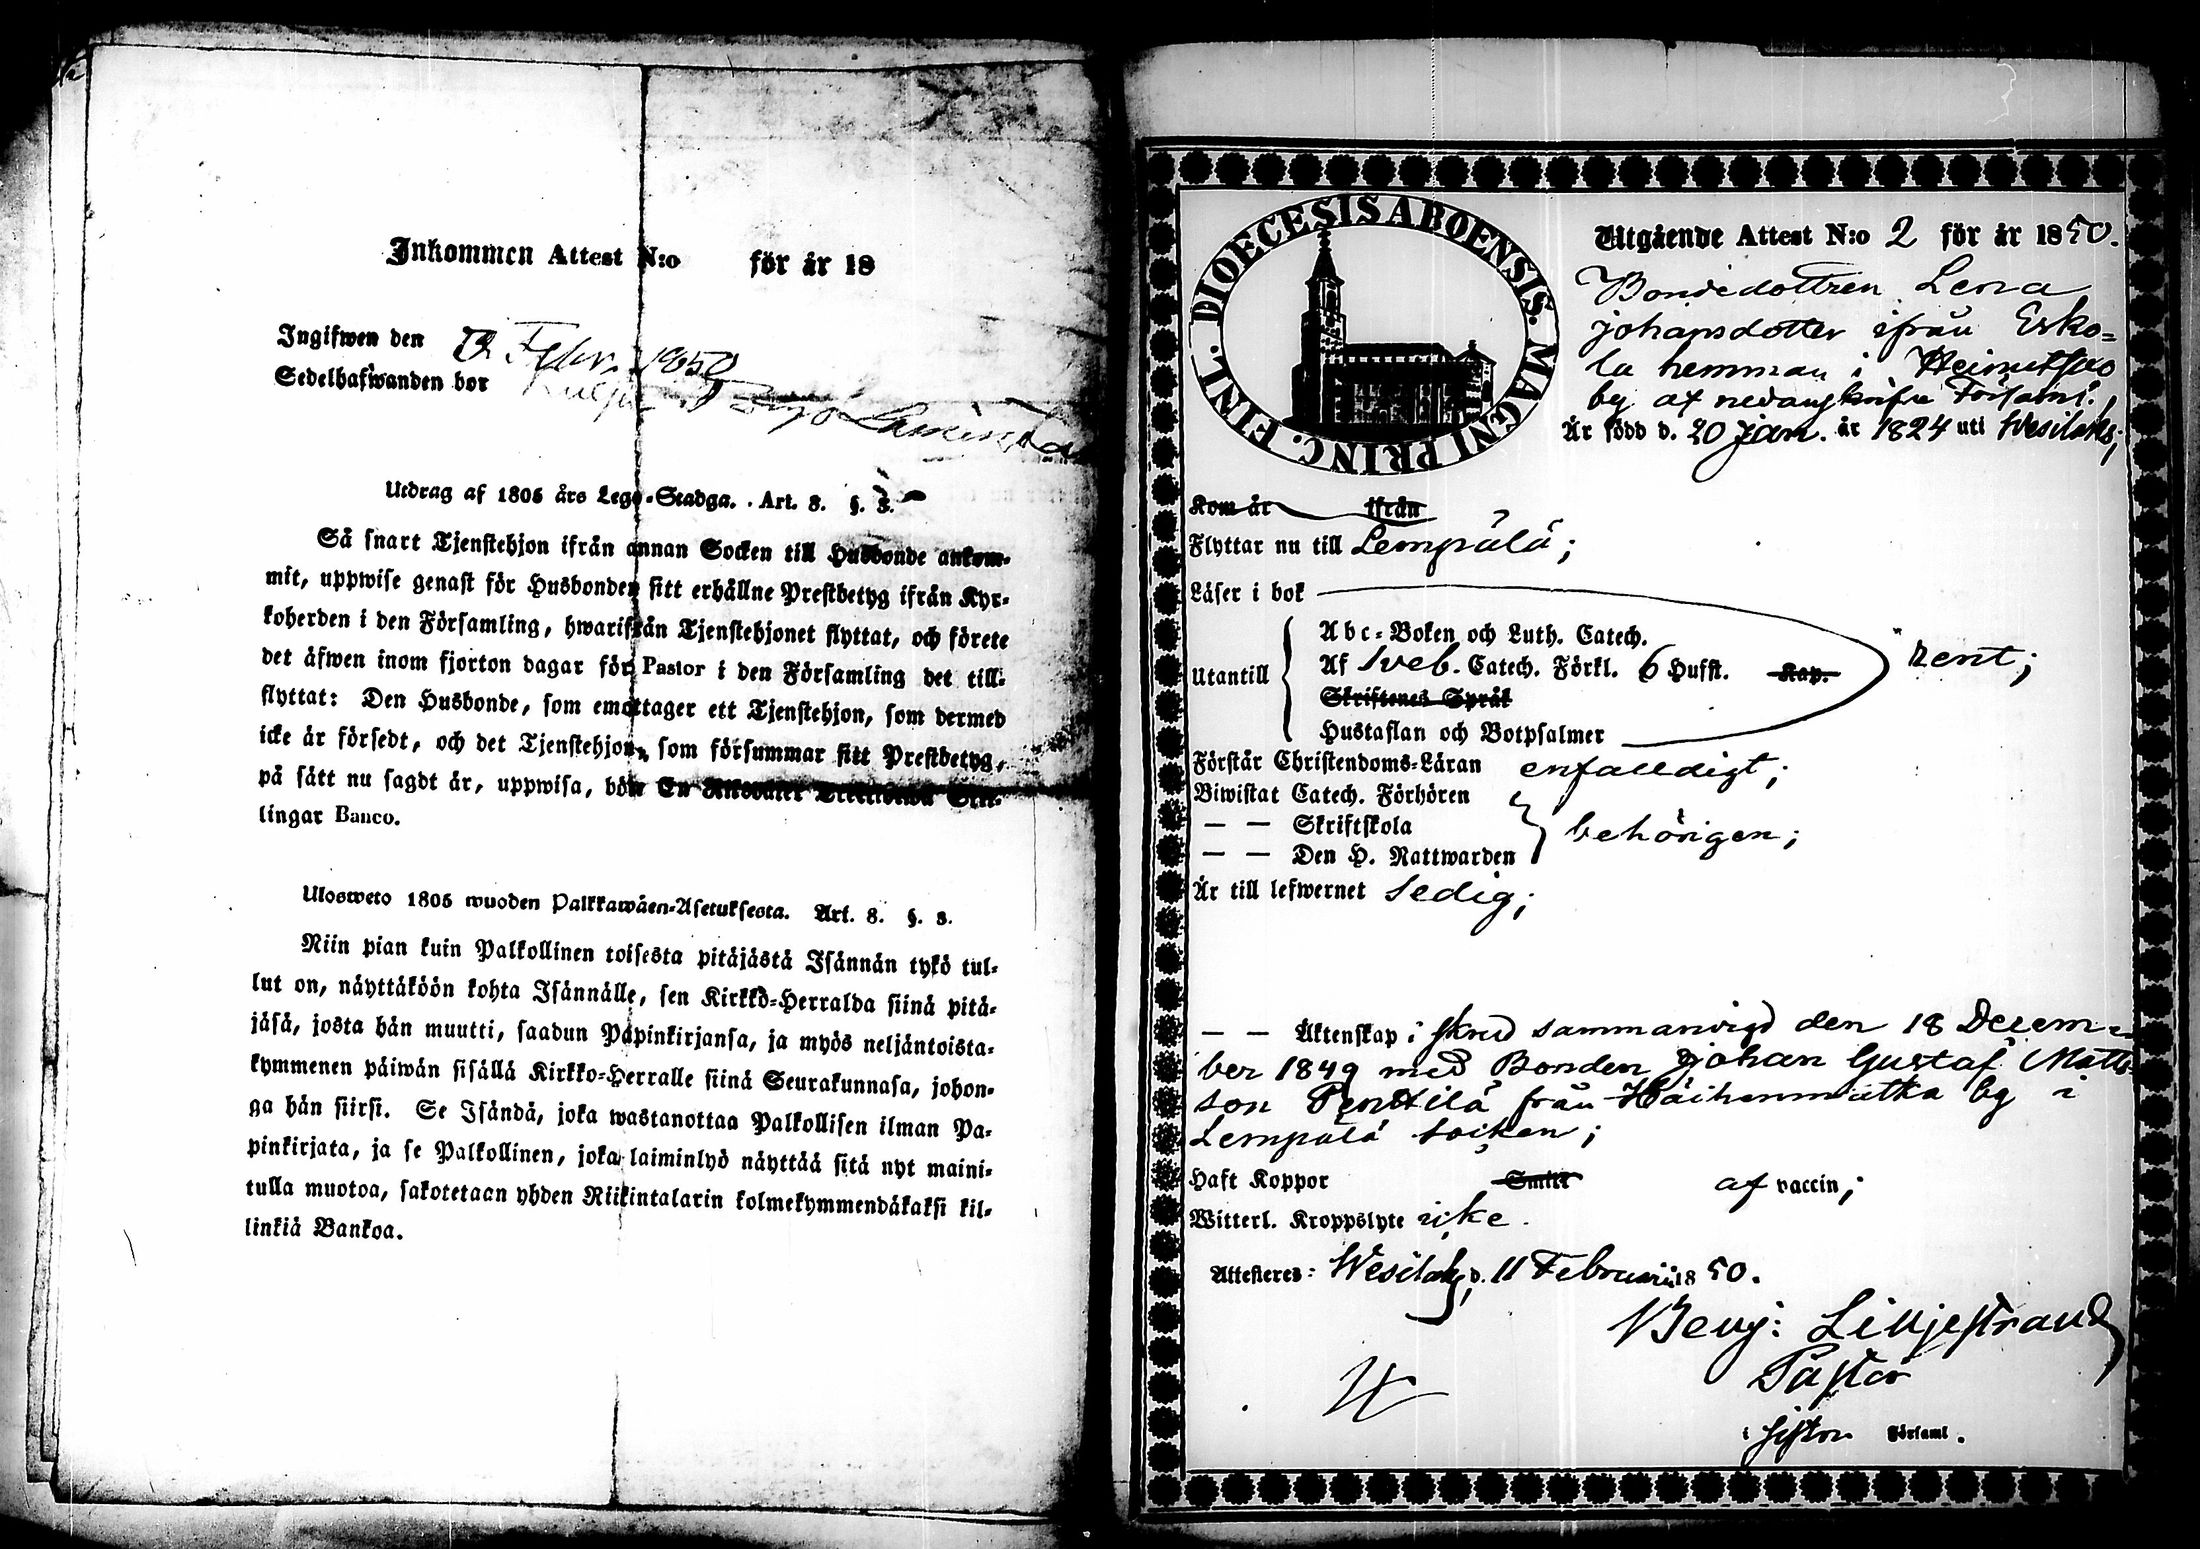 Inkommen Attest N:o för år 18
Ingifwen den Febr. 1850
Sedelhafwanden bor
Utdrag af 1805 års Lego-Stadga. Art. 8. §. 3.
Så snart Tjenstehjon ifrån annan Socken till Husbonde ankom-
mit, uppwise genast för Husbonden sitt erhållne Prestbetyg ifrån Kyr-
koherden i den Församling, hwarifrån Tjenstehjonet flyttat, och förete
det äfwen inom fjorton dagar för Pastor i den Församling det till-
flyttat: Den Husbonde, som emottager ett Tjenstehjon, som dermed
icke är försedt, och det Tjenstehjon, som försummar sitt Prestbetyg,
på sätt nu sagdt är, uppwisa, böte En Riksdaler Trettiotwå Skil-
lingar Banco.
Ulosweto 1805 wuoden Palkkawäen-Asetuksesta. Art. 8. §. 3.
Niin pian kuin Palkollinen toisesta pitäjästä Isännän tykö tul-
lut on, näyttäköön kohta Isännälle, sen Kirkko-Herralda siinä pitä-
jäsä, josta hän muutti, saadun Papinkirjansa, ja myös neljäntoista-
kymmenen päiwän sisällä Kirkko-Herralle siinä Seurakunnasa, johon-
ga hän siirsi. Se Isändä, joka wastanottaa Palkollisen ilman Pa-
pinkirjata, ja se Palkollinen, joka laiminlyö näyttää sitä nyt maini-
tulla muotoa, sakotetaan yhden Riikintalarin kolmekymmendäkaksi kil-
linkiä Bankoa.
DIOECESIS ABOENSIS. MAGNI PRINC. FINL.
Utgående Attest N:o 2 för år 1850.
Bondedottren Lena
Johansdotter ifrån Esko-
la hemman i
by af nedanskrifne Församl.
Är född d. 20 Jan. år 1824 uti Wesilaks;
Kom år ifrån
Flyttar nu till Lempälä;
Läser i bok
Utantill
Abc-Boken och Luth. Catech.
Af Sveb. Catech. Förkl. 6 Hufst. Kap.
Skriftenes Språk
Hustaflan och Botpsalmer
rent;
Förstår Christendoms-Läran enfalldigt;
Biwistat Catech. Förhören
— — Skriftskola
— — Den H. Nattwarden
behörigen;
Är till lefwernet sedig;
— — Äktenskap i skrud sammanvigd den 18 Decem-
ber 1849 med Bonden Johan Gustaf Matts-
son Penttilä från by i
Lempälä socken;
Haft Koppor Smitt af vaccin;
Witterl. Kroppslyte icke.
Attesteres: Wesilaks, d. 11 Februarii 1850.
Benj: Liljestrand
Pastor
i Församl.